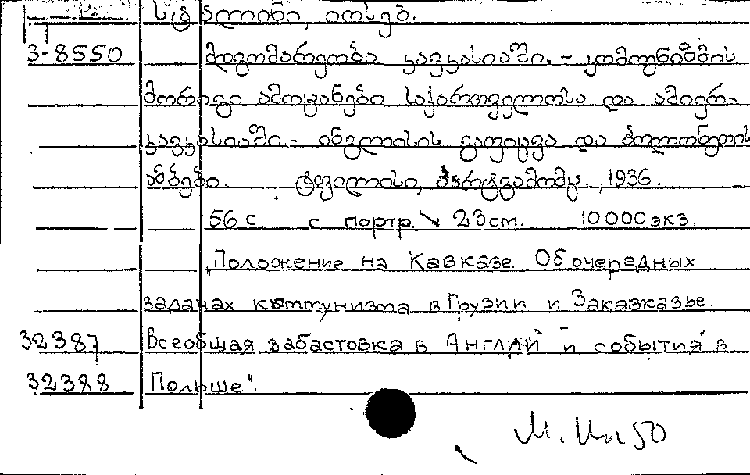 სტალინი, იოსებ.
3-8550 მდგომარეობა კავკასიაში. - კომუნიზმის
მორიგი ამოცანები საქართველოსა და ამიერ-
კავკასიაში. - ინგლისის გაფიცვა და პოლონეთის
ამბები. ტფილისი, პარტგამომც., 1936.
56 с с портр. 23 см. 10000 экз.
"Положение на Кавказе. Об очередных
задачах коммунизма в Грузии и Закавказье.
32387 Всеобщая забастовка в Англии и события в
32388 Польше".